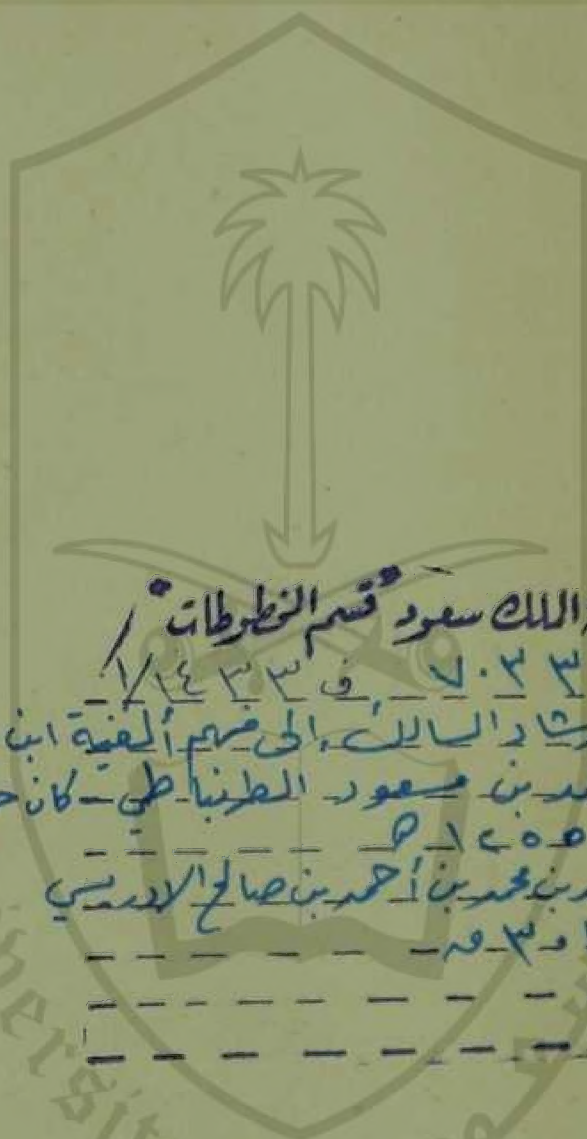 الملك سعود "قسم المخطوطات"
٧٠٣٣ ف ١٤٣٣/١
شاد السالك إلى فهم ألفية ابن
مد بن مسعود الطرنباطي - كان
١٢٥٥ هـ
بن محمد بن أحمد بن صالح الادريسي